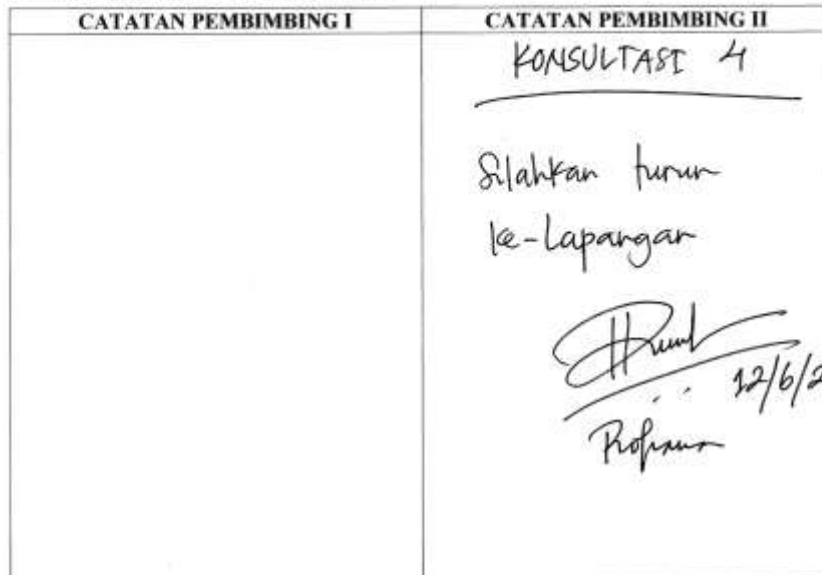 CATATAN PEMBIMBING I
CATATAN PEMBIMBING II
KONSULTASI 4
Silahkan turun
ke-Lapangan
12/6/2